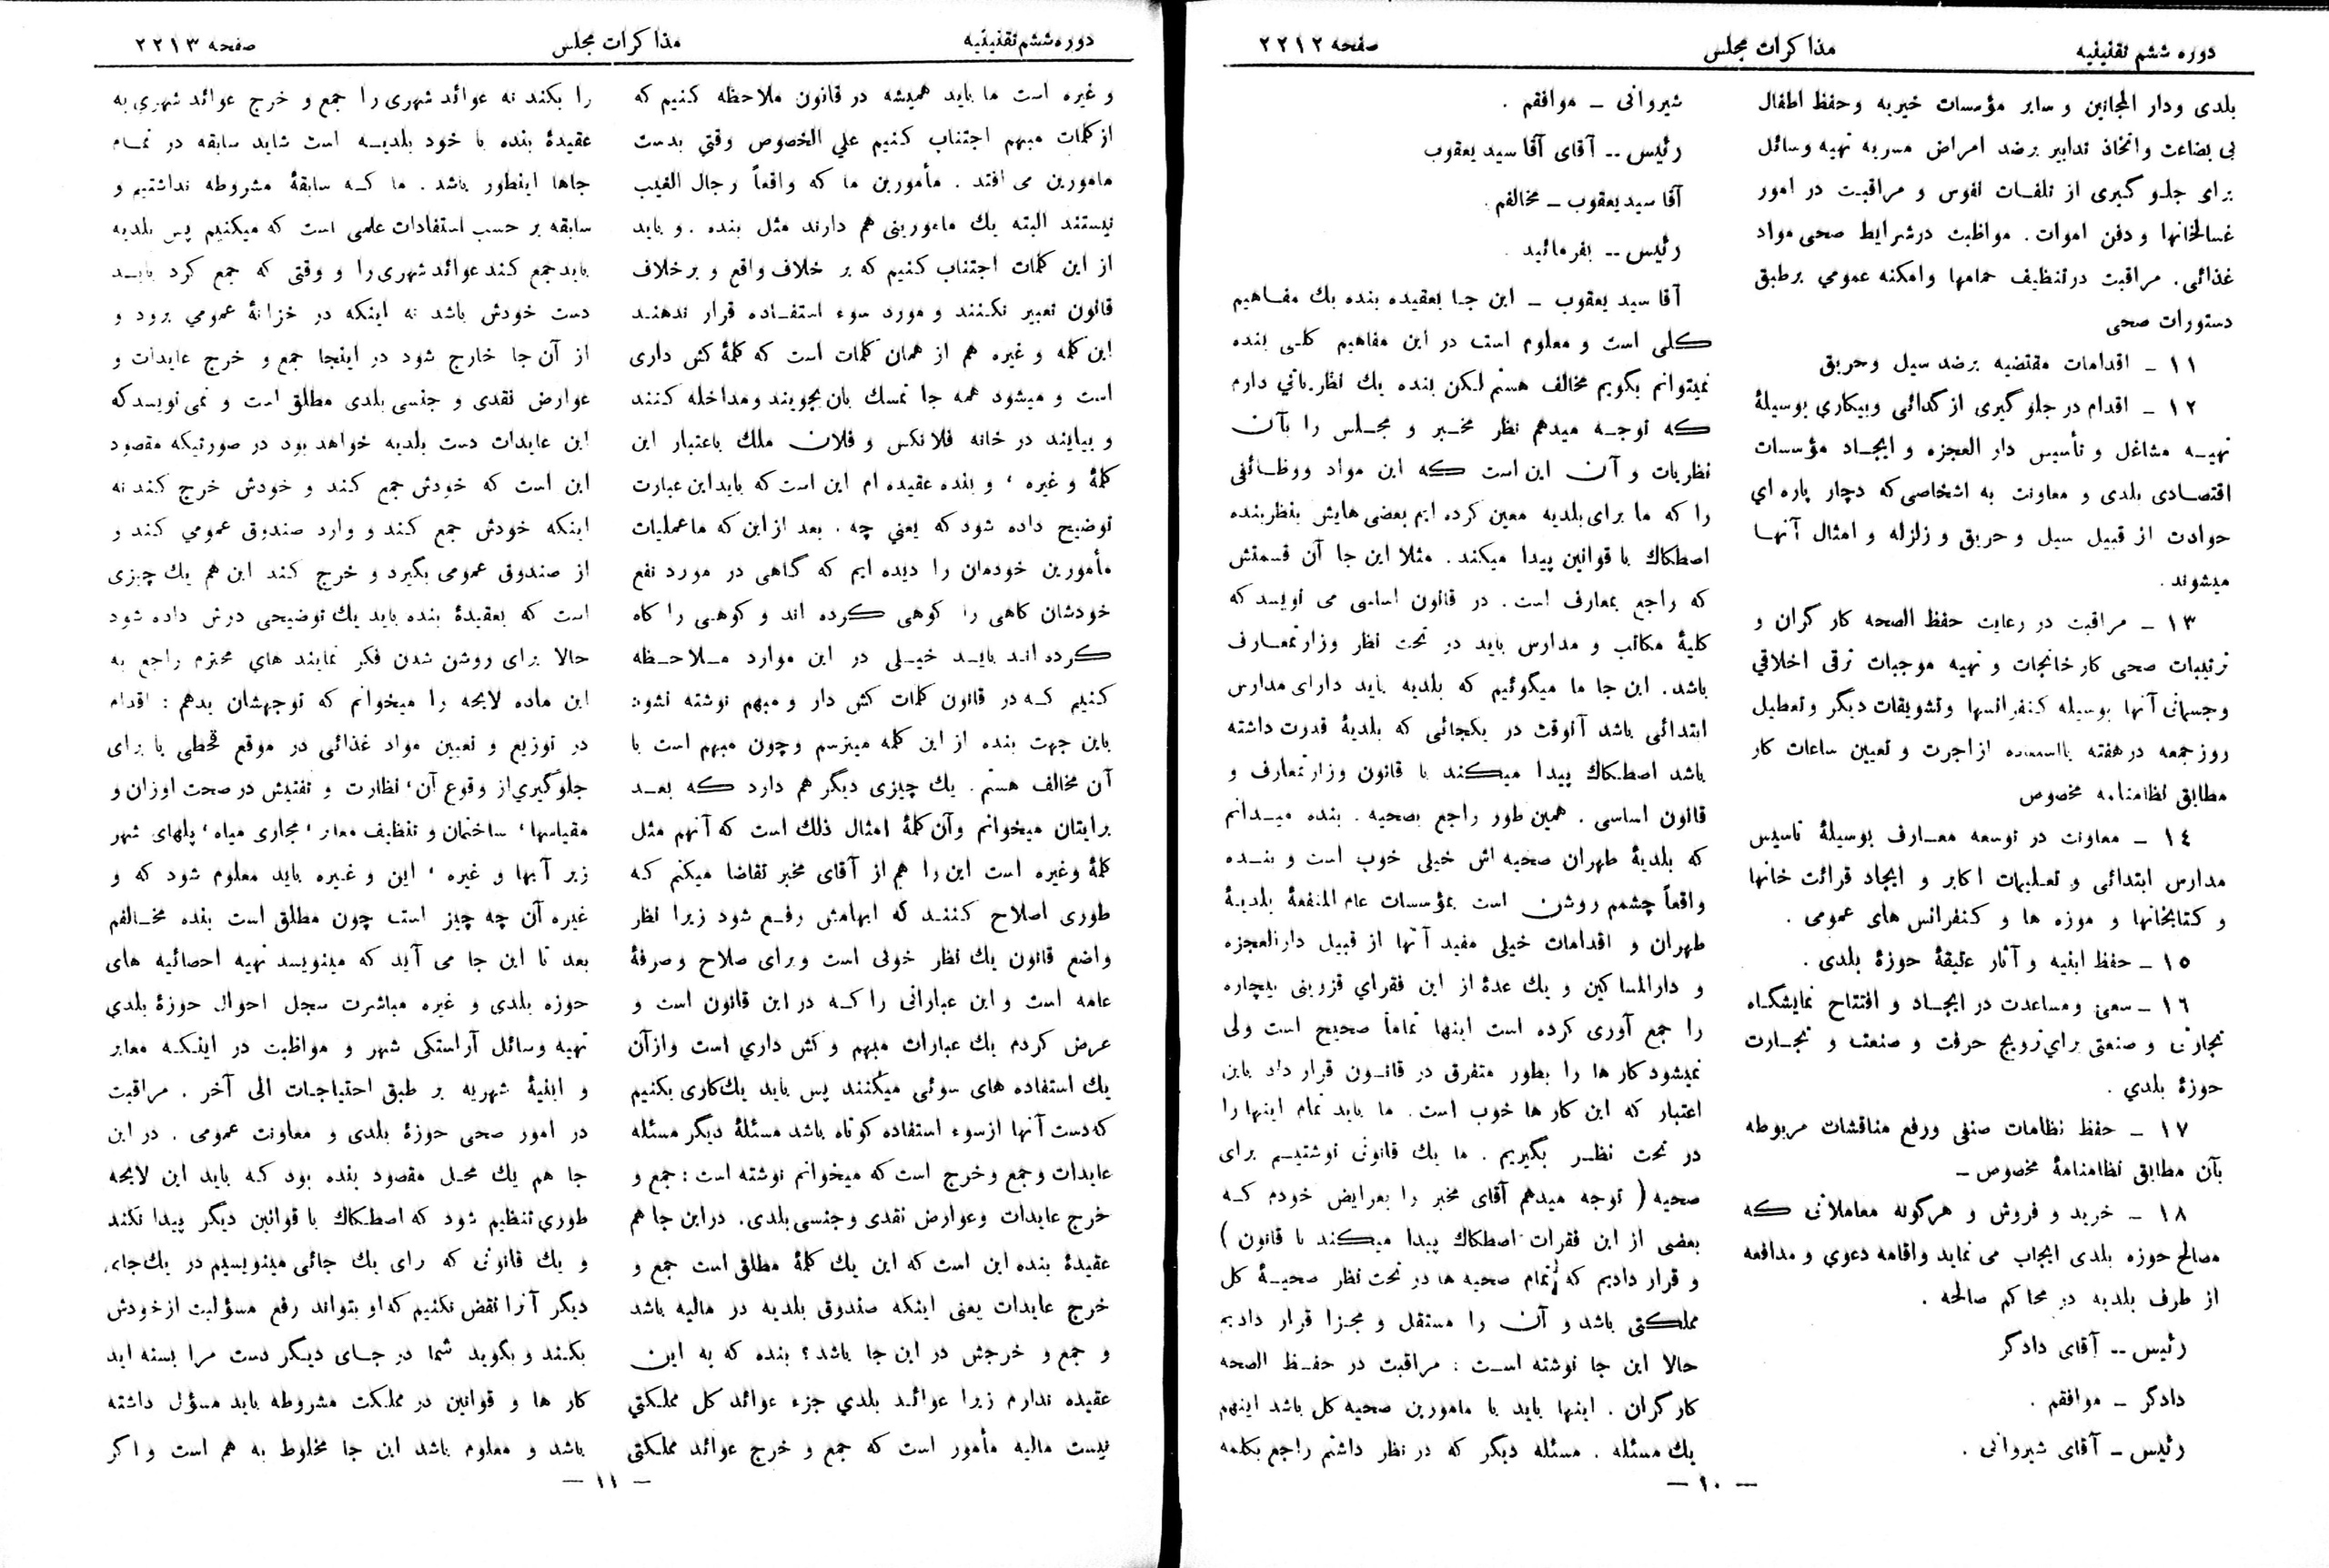 دوره ششم تقنینیه
مذاکرات مجلس
صفحه ۲۲۱۲
بلدی ودار المجانین و سایر مؤسسات خیریه وحفظ اطفال
بی بضاعت واتخاذ تدابیر برضد امراض مسریه تهیه وسائل
برای جلو گیری از تلفات نفوس و مراقبت در امور
غسالخانها و دفن اموات. مواظبت درشرایط صحی مواد
غذائی. مراقبت درتنظیف حمامها وامکنه عمومي برطبق
دستورات صحی
۱۱ ـ اقدامات مقتضیه برضد سیل وحریق
۱۲ ـ اقدام در جلو گیری از گدائی وبیکاری بوسیلۀ
تهیه مشاغل و تأسیس دار العجزه و ایجاد مؤسسات
اقتصادی بلدی و معاونت به اشخاصی که دچار پاره اي
حوادث از قبیل سیل و حریق و زلزله و امثال آنها
میشوند .
۱۳ ـ مراقبت در رعایت حفظ الصحه کار گران و
ترتیبات صحی کارخانجات و تهیه موجبات ترقی اخلاقي
وجسمانی آنها بوسیله کنفرانسها وتشویقات دیگر وتعطیل
روز جمعه در هفته باستفاده از اجرت و تعیین ساعات کار
مطابق نظامنامه مخصوص
۱٤ ـ معاونت در توسعه معارف بوسیلۀ تاسیس
مدارس ابتدائی و تعلیمات اکابر و ایجاد قرائت خانها
و کتابخانها و موزه ها و کنفرانس های عمومی .
۱٥ ـ حفظ ابنیه و آثار عتیقۀ حوزۀ بلدی .
۱٦ ـ سعی ومساعدت در ایجاد و افتتاح نمایشگاه
تجارتی و صنعتی براي ترویج حرفت و صنعت و تجارت
حوزۀ بلدي .
۱۷ ـ حفظ نظامات صنفی ورفع مناقشات مربوطه
بآن مطابق نظامنامۀ مخصوص ـ
۱۸ ـ خرید و فروش و هرگونه معاملاتی که
مصالح حوزه بلدی ایجاب می نماید واقامه دعوي و مدافعه
از طرف بلدیه در محاکم صالحه .
رئیس -- آقای دادگر
دادگر ـ موافقم .
رئیس ـ آقای شیروانی .
شیروانی ـ موافقم .
رئیس -- آقای آقا سید یعقوب
آقا سید یعقوب ـ مخالفم .
رئیس -- بفرمائید .
آقا سید یعقوب ـ این جا بعقیده بنده یك مفاهیم
کلی است و معلوم است در این مفاهیم کلی بنده
نمیتوانم بگویم مخالف هستم لکن بنده یك نظریاتي دارم
که توجه میدهم نظر مخبر و مجلس را بآن
نظریات و آن این است که این مواد ووظائفی
را که ما برای بلدیه معین کرده ایم بعضی هایش بنظر بنده
اصطکاك با قوانین پیدا میکند. مثلا این جا آن قسمتش
که راجع بمعارف است. در قانون اساسی می نویسد که
کلیۀ مکاتب و مدارس باید در تحت نظر وزارتمعارف
باشد. این جا ما میگوئیم که بلدیه باید دارای مدارس
ابتدائی باشد آنوقت در یکجائی که بلدیۀ قدرت داشته
باشد اصطکاك پیدا میکند با قانون وزارتمعارف و
قانون اساسی . همین طور راجع بصحیه . بنده میدانم
که بلدیۀ طهران صحیه اش خیلی خوب است و بنده
واقعاً چشمم روشن است بمؤسسات عام المنفعۀ بلدیۀ
طهران و اقدامات خیلی مفید آنها از قبیل دارالعجزه
و دارالمساکین و یك عدۀ از این فقراي قزوینی بیچاره
را جمع آوری کرده است اینها تماماً صحیح است ولی
نمیشود کار ها را بطور متفرق در قانون قرار داد باین
اعتبار که این کار ها خوب است. ما باید تمام اینها را
در تحت نظر بگیریم . ما یك قانونی نوشتیم برای
صحیه ( توجه میدهم آقای مخبر را بعرایض خودم که
بعضی از این فقرات اصطکاك پیدا میکند با قانون )
و قرار دادیم که تمام صحیه ها در تحت نظر صحیۀ کل
مملکتی باشد و آن را مستقل و مجزا قرار دادیم
حالا این جا نوشته است : مراقبت در حفظ الصحه
کارگران . اینها باید با مامورین صحیه کل باشد اینهم
یك مسئله . مسئله دیگر که در نظر داشتم راجع بکلمه
ـ ۱۰ ـ
دوره ششم تقنینیه
مذاکرات مجلس
صفحه ۲۲۱۳
و غیره است ما باید همیشه در قانون ملاحظه کنیم که
از کلمات مبهم اجتناب کنیم علي الخصوص وقتي بدست
مامورین می افتد . مأمورین ما که واقعاً رجال الغیب
نیستند البته یك مامورینی هم دارند مثل بنده . و باید
از این کلمات اجتناب کنیم که بر خلاف واقع و برخلاف
قانون تعبیر نکنند و مورد سوء استفاده قرار ندهند
این کلمه و غیره هم از همان کلمات است که کلمۀ کش داری
است و میشود همه جا تمسك بان بجویند ومداخله کنند
و بیایند در خانه فلانکس و فلان ملك باعتبار این
کلمۀ و غیره ، و بنده عقیده ام این است که باید این عبارت
توضیح داده شود که یعني چه . بعد از این که ما عملیات
مأمورین خودمان را دیده ایم که گاهی در مورد نفع
خودشان کاهی را کوهی کرده اند و کوهی را کاه
کرده اند باید خیلی در این موارد ملاحظه
کنیم که در قانون کلمات کش دار و مبهم نوشته نشود
باین جهت بنده از این کلمه میترسم وچون مبهم است با
آن مخالف هستم . یك چیزی دیگر هم دارد که بعد
برایتان میخوانم وآن کلمۀ امثال ذلك است که آنهم مثل
کلمۀ وغیره است این را هم از آقای مخبر تقاضا میکنم که
طوری اصلاح کنند که ابهامش رفع شود زیرا نظر
واضع قانون یك نظر خوبی است و برای صلاح وصرفۀ
عامه است و این عباراتی را که در این قانون است و
عرض کردم یك عبارات مبهم و کش داري است وازآن
یك استفاده های سوئی میکنند پس باید یك کاری بکنیم
که دست آنها ازسوء استفاده کوتاه باشد مسئلۀ دیگر مسئله
عایدات وجمع وخرج است که میخوانم نوشته است : جمع و
خرج عایدات وعوارض نقدی وجنسی بلدی. در این جا هم
عقیدۀ بنده این است که این یك کلمۀ مطلق است جمع و
خرج عایدات یعنی اینکه صندوق بلدیه در مالیه باشد
و جمع و خرجش در این جا باشد ؟ بنده که به این
عقیده ندارم زیرا عوائد بلدي جزء عوائد کل مملکتي
نیست مالیه مأمور است که جمع و خرج عوائد مملکتی
را بکند نه عوائد شهری را جمع و خرج عوائد شهری به
عقیدۀ بنده با خود بلدیه است شاید سابقه در تمام
جاها اینطور باشد . ما که سابقۀ مشروطه نداشتیم و
سابقه بر حسب استفادات علمی است که میکنیم پس بلدیه
باید جمع کند عوائد شهری را و وقتی که جمع کرد باید
دست خودش باشد نه اینکه در خزانۀ عمومي برود و
از آن جا خارج شود در اینجا جمع و خرج عایدات و
عوارض نقدی و جنسی بلدی مطلق است و نمی نویسد که
این عایدات دست بلدیه خواهد بود در صورتیکه مقصود
این است که خودش جمع کند و خودش خرج کند نه
اینکه خودش جمع کند و وارد صندوق عمومي کند و
از صندوق عمومی بگیرد و خرج کند این هم یك چیزی
است که بعقیدۀ بنده باید یك توضیحی درش داده شود
حالا برای روشن شدن فکر نمایند هاي محترم راجع به
این ماده لایحه را میخوانم که توجهشان بدهم : اقدام
در توزیع و تعیین مواد غذائی در موقع قحطی یا برای
جلوگیري از وقوع آن ، نظارت و تفتیش در صحت اوزان و
مقیاسها ، ساختمان و تنظیف معابر ، مجاری میاه ، پلهای شهر
زیر آبها و غیره ، این و غیره باید معلوم شود که و
غیره آن چه چیز است چون مطلق است بنده مخالفم
بعد تا این جا می آید که مینویسد تهیه احصائیه های
حوزه بلدی و غیره مباشرت سجل احوال حوزۀ بلدي
تهیه وسائل آراستگی شهر و مواظبت در اینکه معابر
و ابنیۀ شهریه بر طبق احتیاجات الی آخر . مراقبت
در امور صحی حوزۀ بلدی و معاونت عمومی . در این
جا هم یك محل مقصود بنده بود که باید این لایحه
طوري تنظیم شود که اصطکاك با قوانین دیگر پیدا نکند
و یك قانونی که رای یك جائی مینویسیم در یك جای
دیگر آنرا نقض نکنیم که او بتواند رفع مسؤلیت از خودش
بکند و بگوید شما در جای دیگر دست مرا بسته اید
کار ها و قوانین در مملکت مشروطه باید مسؤل داشته
باشد و معلوم باشد این جا مخلوط به هم است و اگر
ـ ۱۱ ـ